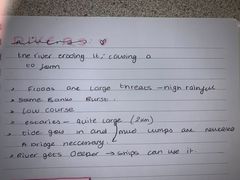 Rivers ♥
the river eroding it, causing a
to form
Floods are large threats - high rainful
Some Banks Burst.
low course
estaries - quite large (2km)
tide goes in and / mud lumps are revealed
A bridge neccessary.
River gets Deeper → ships can use it.